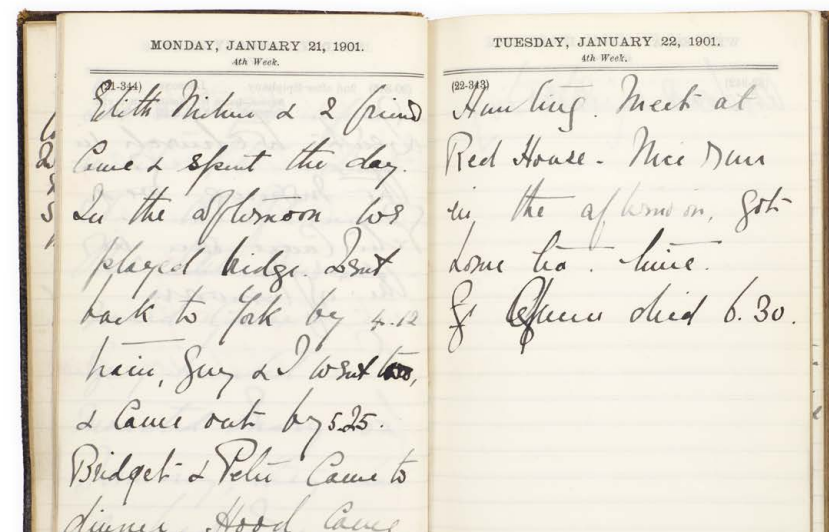 MONDAY, JANUARY 21, 1901.
4th Week.
(21-344)
Edith & 2 friends
came & spent the day.
In the afternoon we
played bridge. Went
back to York by 4.12
train, Guy & I went too,
& came out by 5.25.
Bridget & Peter came to
dinner. Hood came
TUESDAY, JANUARY 22, 1901.
4th Week.
(22-343)
Hunting. Meet at
Red House - Nice run
in the afternoon, got
home tea. time.
Queen died 6.30.